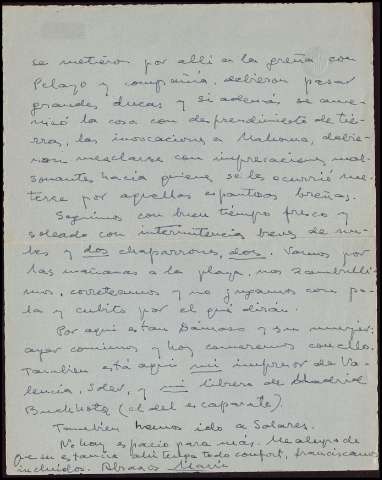 se metieron por allí a la greña con
Pelayo y compañía, debieron pasar
grandes ducas y si además se ame-
nizó la cosa con desprendimiento de tie-
rras, las invocaciones a Mahoma, debie-
ron mezclarse con imprecaciones mal-
sonantes hacia quienes se les ocurrió me-
terse por aquellas espantosas breñas.
Seguimos con buen tiempo fresco y
soleado con intermitencia breve de nu-
bes y dos chaparrones, dos. Vamos por
las mañanas a la playa, nos zambulli-
mos, correteamos y no jugamos con pa-
la y cubito por el qué dirán.
Por aquí están Dámaso y su mujer;
ayer comimos y hoy comeremos con ellos.
También está aquí mi impresor de Va-
lencia, Soler, y mi librero de Madrid
Buchholz (el del escaparate).
También hemos ido a Solares.
No hay espacio para más. Me alegro de
que su estancia ahí tenga todo confort, franciscanos
incluidos. Abrazos